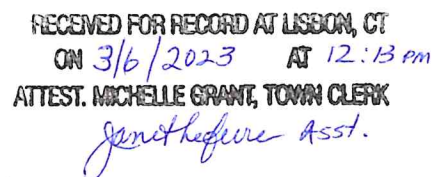 RECEIVED FOR RECORD AT LISBON, CT
ON 3/6/2023 AT 12:13 pm
ATTEST. MICHELLE GRANT, TOWN CLERK
Asst.